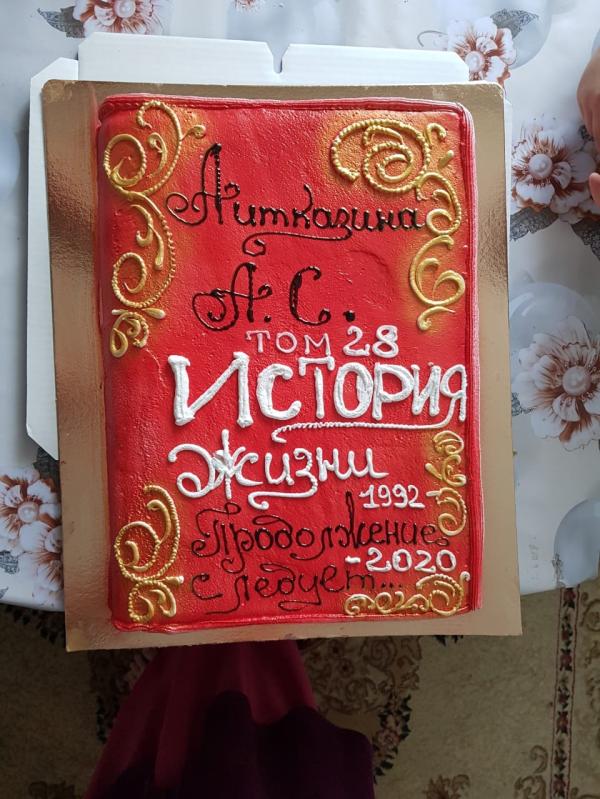 Аитказина
А. С.
ТОМ 28
ИСТОРИЯ
Жизни
1992
Продолжение
-2020
следует...